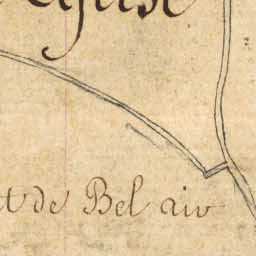 Eglise
t de Bel air